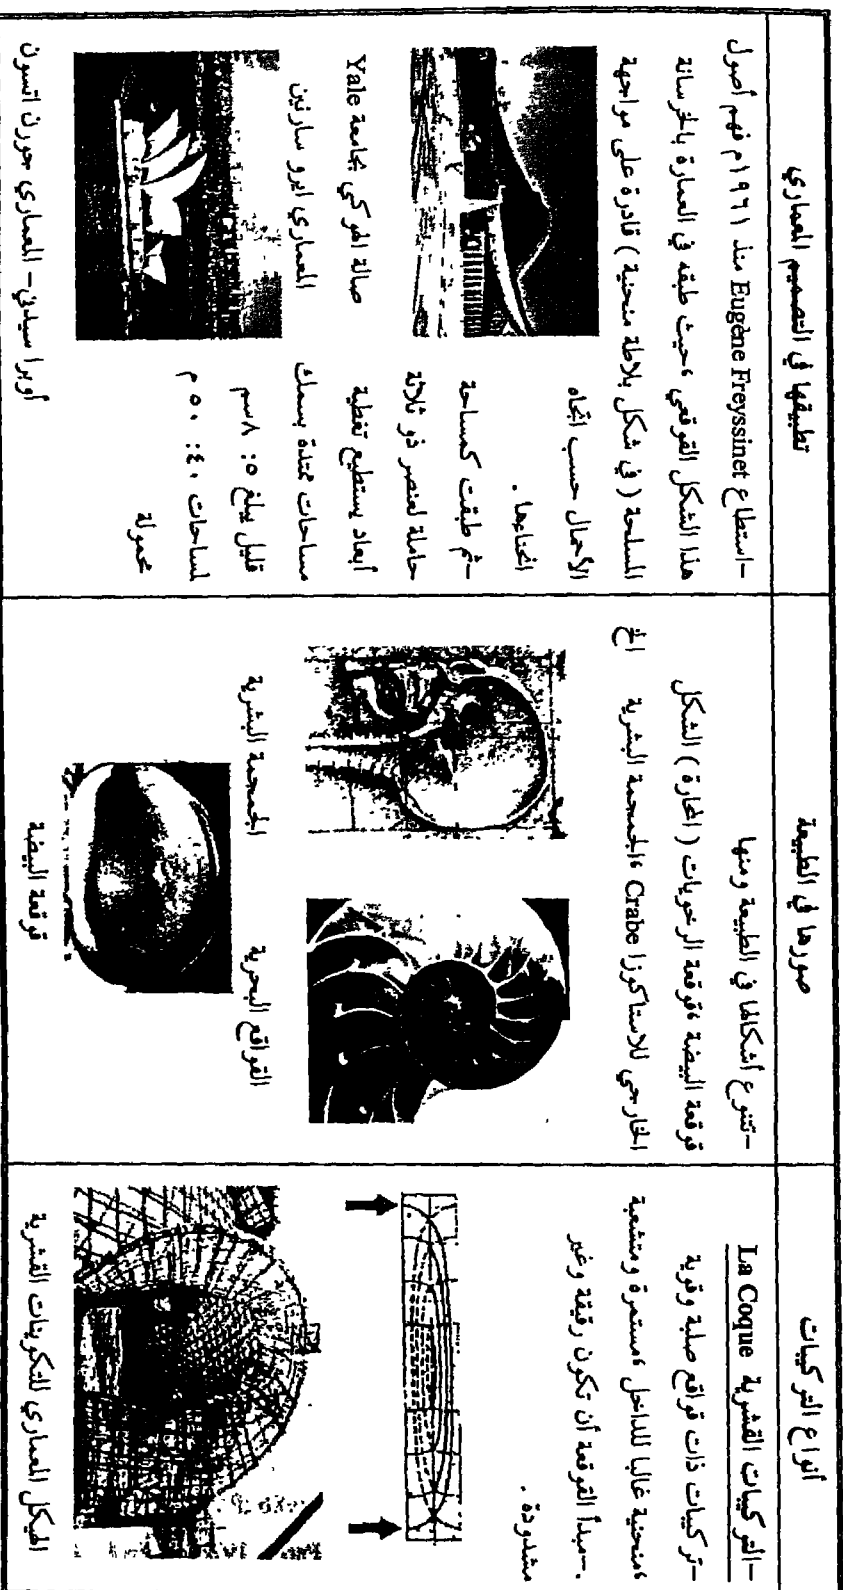 أنواع التركيبات
صورها في الطبيعة
تطبيقها في التصميم المعماري
-التركيبات القشرية La Coque
-تركيبات ذات قواقع صلبة وقوية
،منحنية غالبا للداخل ،مستمرة ومتشعبة
.-مبدأ القوقعة أن تكون رقيقة وغير
مشدودة .
الهيكل المعماري للتكوينات القشرية
-تتنوع أشكالها في الطبيعة ومنها
قوقعة البيضة ،قوقعة الرخويات ( المحارة ) الشكل
الخارجي للاستاكوزا Crabe ،الجمجمة البشرية الخ
القواقع البحرية
الجمجمة البشرية
قوقعة البيضة
-استطاع Eugène Freyssinet منذ ١٩٦١م فهم أصول
هذا الشكل القوقعي ،حيث طبقه في العمارة بالخرسانة
المسلحة ( في شكل بلاطة منحنية ) قادرة على مواجهة
الأحمال حسب اتجاه
انحناءها .
-ثم طبقت كمساحة
حاملة لعنصر ذو ثلاثة
أبعاد يستطيع تغطية
مساحات ممتدة بسمك
قليل يبلغ ٥: ٨سم
لمساحات ٤٠: ٥٠ م
محمولة
صالة الهوكي بجامعة Yale
المعماري ايرو سارنين
أوبرا سيدني – المعماري جورن اتسون